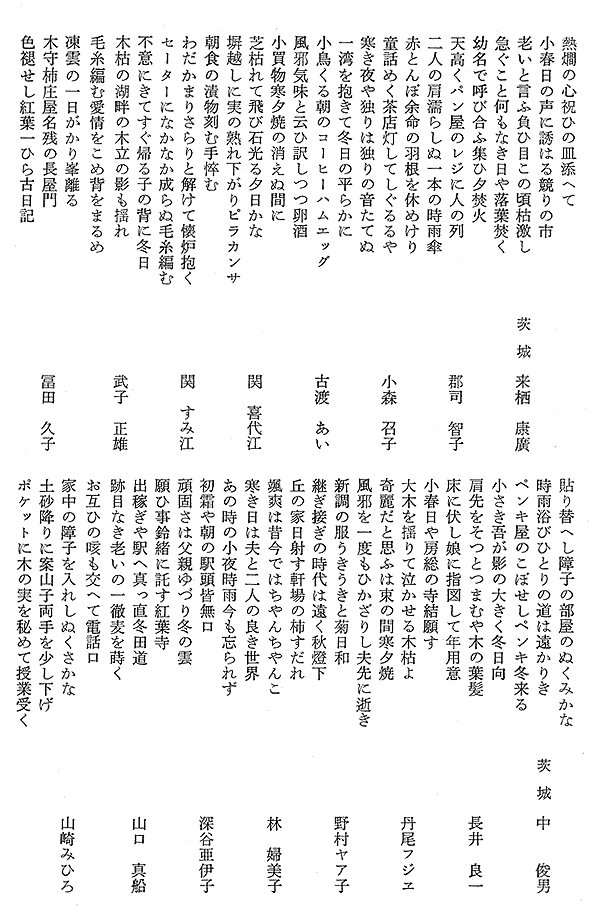 熱燗の心祝ひの皿添へて
小春日の声に誘はる競りの市
老いと言ふ負ひ目この頃枯激し
茨城 来栖 康廣
急ぐこと何もなき日や落葉焚く
幼名で呼び合ふ集ひ夕焚火
天高くパン屋のレジに人の列
郡司 智子
二人の肩濡らしぬ一本の時雨傘
赤とんぼ余命の羽根を休めけり
童話めく茶店灯してしぐるるや
小森 召子
寒き夜や独りは独りの音たてぬ
一湾を抱きて冬日の平らかに
小鳥くる朝のコーヒーハムエッグ
古渡 あい
風邪気味と云ひ訳しつつ卵酒
小買物寒夕焼の消えぬ間に
芝枯れて飛び石光る夕日かな
関 喜代江
塀越しに実の熟れ下がりピラカンサ
朝食の漬物刻む手悴む
わだかまりさらりと解けて懐炉抱く
関 すみ江
セーターになかなか成らぬ毛糸編む
不意にきてすぐ帰る子の背に冬日
木枯の湖畔の木立の影も揺れ
武子 正雄
毛糸編む愛情をこめ背をまるめ
凍雲の一日がかり峯離る
木守柿庄屋名残の長屋門
冨田 久子
色褪せし紅葉一ひら古日記
貼り替へし障子の部屋のぬくみかな
時雨浴びひとりの道は遠かりき
茨城 中 俊男
ペンキ屋のこぼせしペンキ冬来る
小さき吾が影の大きく冬日向
肩先をそつとつまむや木の葉髪
長井 良一
床に伏し娘に指図して年用意
小春日や房総の寺結願す
大木を揺りて泣かせる木枯よ
丹尾フジヱ
奇麗だと思ふは束の間寒夕焼
風邪を一度もひかざりし夫先に逝き
新調の服うきうきと菊日和
野村ヤア子
継ぎ接ぎの時代は遠く秋燈下
丘の家日射す軒場の柿すだれ
颯爽は昔今ではちやんちやんこ
林 婦美子
寒き日は夫と二人の良き世界
あの時の小夜時雨今も忘られず
初霜や朝の駅頭皆無口
深谷亜伊子
頑固さは父親ゆづり冬の雲
願ひ事鈴緒に託す紅葉寺
出稼ぎや駅へ真っ直冬田道
山口 真船
跡目なき老いの一徹麦を蒔く
お互ひの咳も交へて電話口
家中の障子を入れしぬくさかな
山崎みひろ
土砂降りに案山子両手を少し下げ
ポケットに木の実を秘めて授業受く